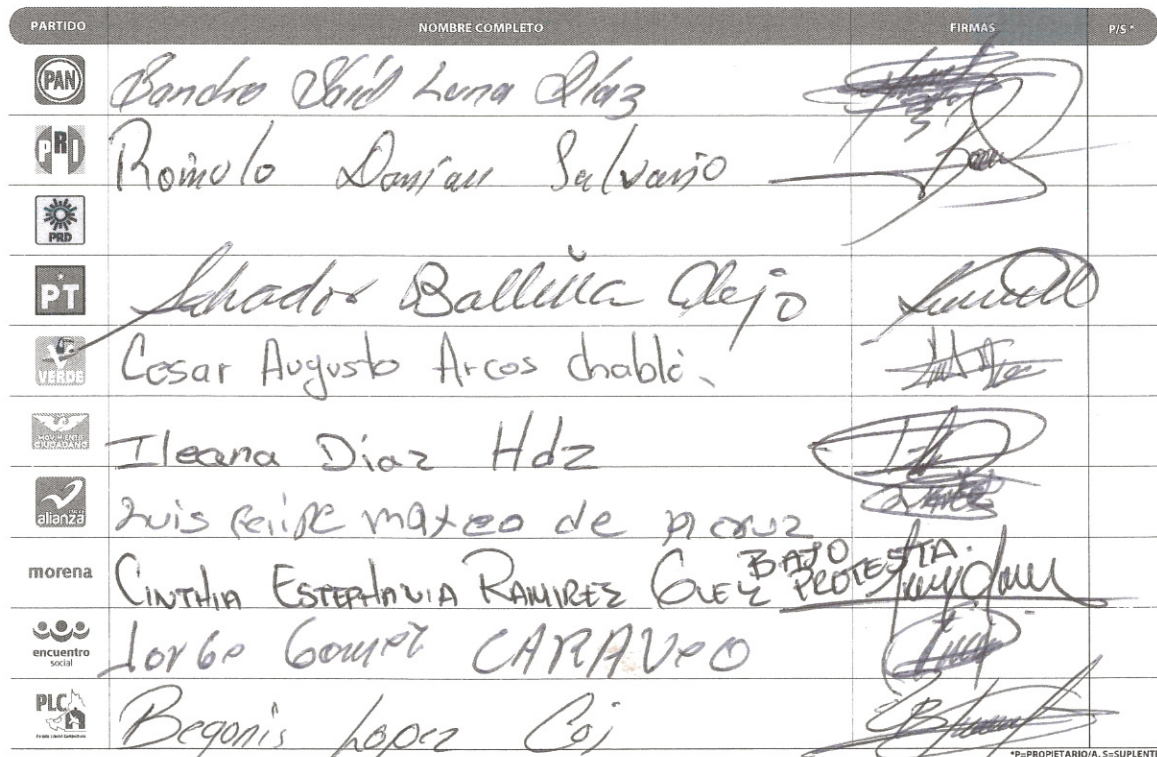 PARTIDO NOMBRE COMPLETO FIRMAS P/S *
PAN Sandro Said Luna Díaz
PRI Romulo Damian Salvario
PRD
PT Salvador Ballina Alejo
VERDE Cesar Augusto Arcos chablé.
MOVIMIENTO CIUDADANO Ileana Diaz Hdz
alianza Luis Felipe mateo de la cruz
morena CINTHIA ESTEPHANIA RAMIREZ BAJO PROTESTA.
encuentro social Jorge Gomez CARAVEO
PLC Begonis Lopez Coj
*P=PROPIETARIO/A, S=SUPLENTE